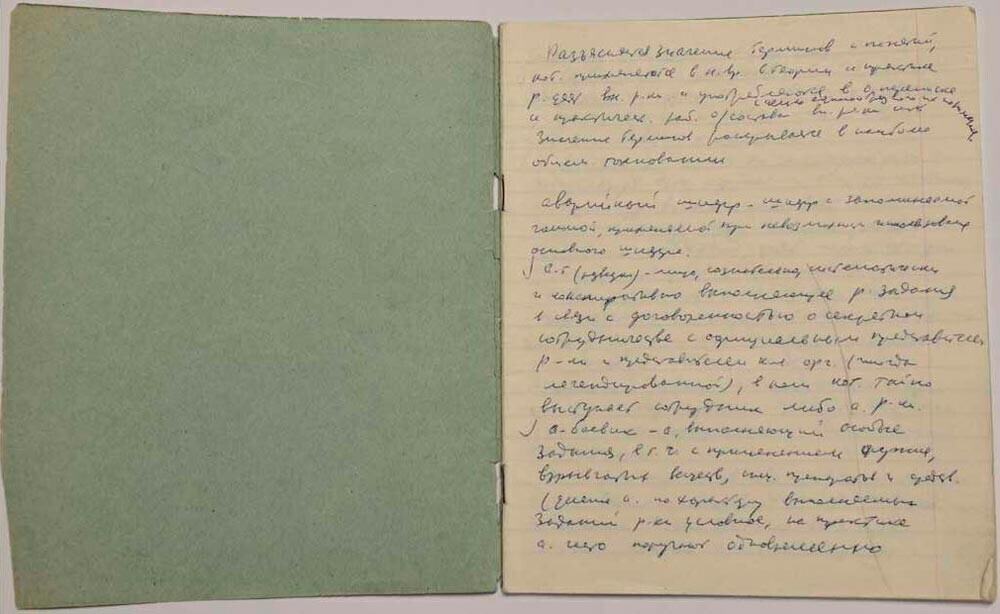 Разъясняется значение терминов и понятий,
кот. применяются в н.вр. в теории и практике
р. деят вн. р-ки и употребляются в о. переписке
с целью единообразного их понимания
и практическ. раб. о/состава вн. р-ки
Значение терминов раскрывается в наиболее
общем толковании
аварийный шифр – шифр с запоминаемой
гаммой, применяемой при невозможн использования
основного шифра.
а-т (разведки) – лицо, сознательно, систематически
и конспиративно выполняющее р. задания
в связи с договоренностью о секретном
сотрудничестве с официальным представителем
р-ки и представителем к-л орг. (иногда
легендированной), в кот. тайно
выступает сотрудник либо а. р-ки.
а-боевик – а, выполняющий особые
задания, в т.ч. с применением оружия,
взрывчатых веществ, спец. препаратов и средств.
(деление а. по характеру выполняемых
заданий р-ки условное, на практике
а. часто поручают одновременно